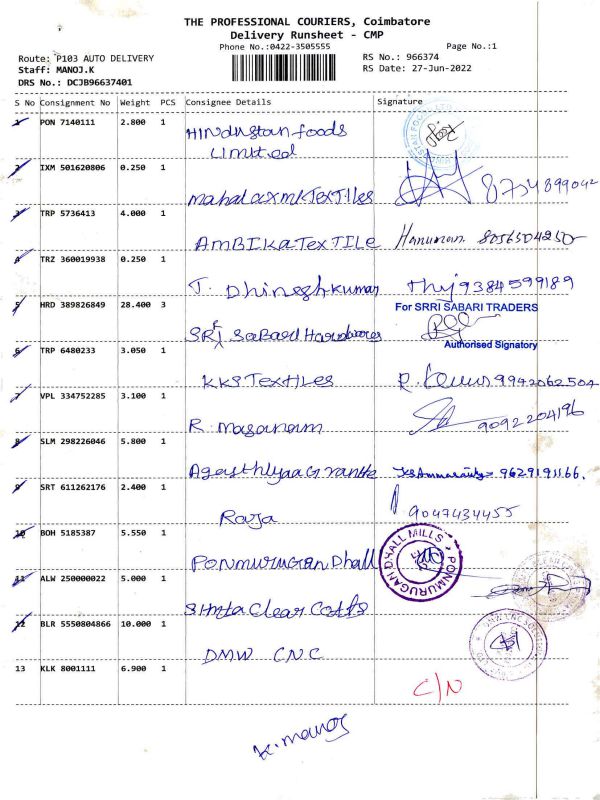 THE PROFESSIONAL COURIERS, Coimbatore
Delivery Runsheet - CMP
Phone No.:0422-3505555
Page No.:1
Route: P103 AUTO DELIVERY
RS No.: 966374
Staff: MANOJ.K
RS Date: 27-Jun-2022
DRS No.: DCJB96637401
S No Consignment No Weight PCS Consignee Details Signature
1 PON 7140111 2.800 1 Hindustan foods
Limited
2 IXM 501620806 0.250 1
Mahalaxmi Textiles 8754899042
3 TRP 5736413 4.000 1
AMBIKA TexTILE Hanuman 8056504250
4 TRZ 360019938 0.250 1
T. Dhineshkumar 9384599189
5 HRD 389826849 28.400 3
For SRRI SABARI TRADERS
SRI Sabari Hardwares
Authorised Signatory
6 TRP 6480233 3.050 1
KKS Textiles 9942062504
7 VPL 334752285 3.100 1
R. Masanam 9092204196
8 SLM 298226046 5.800 1
Agasthiyaa Granite 9629191166.
9 SRT 611262176 2.400 1
Raja 9047434455
10 BOH 5185387 5.550 1
PONMURUGAN Dhall
PONMURUGAN DHALL MILLS
11 ALW 250000022 5.000 1
12 BLR 5550804866 10.000 1
DMW CNC
13 KLK 8001111 6.900 1
C/N
K. Manoj